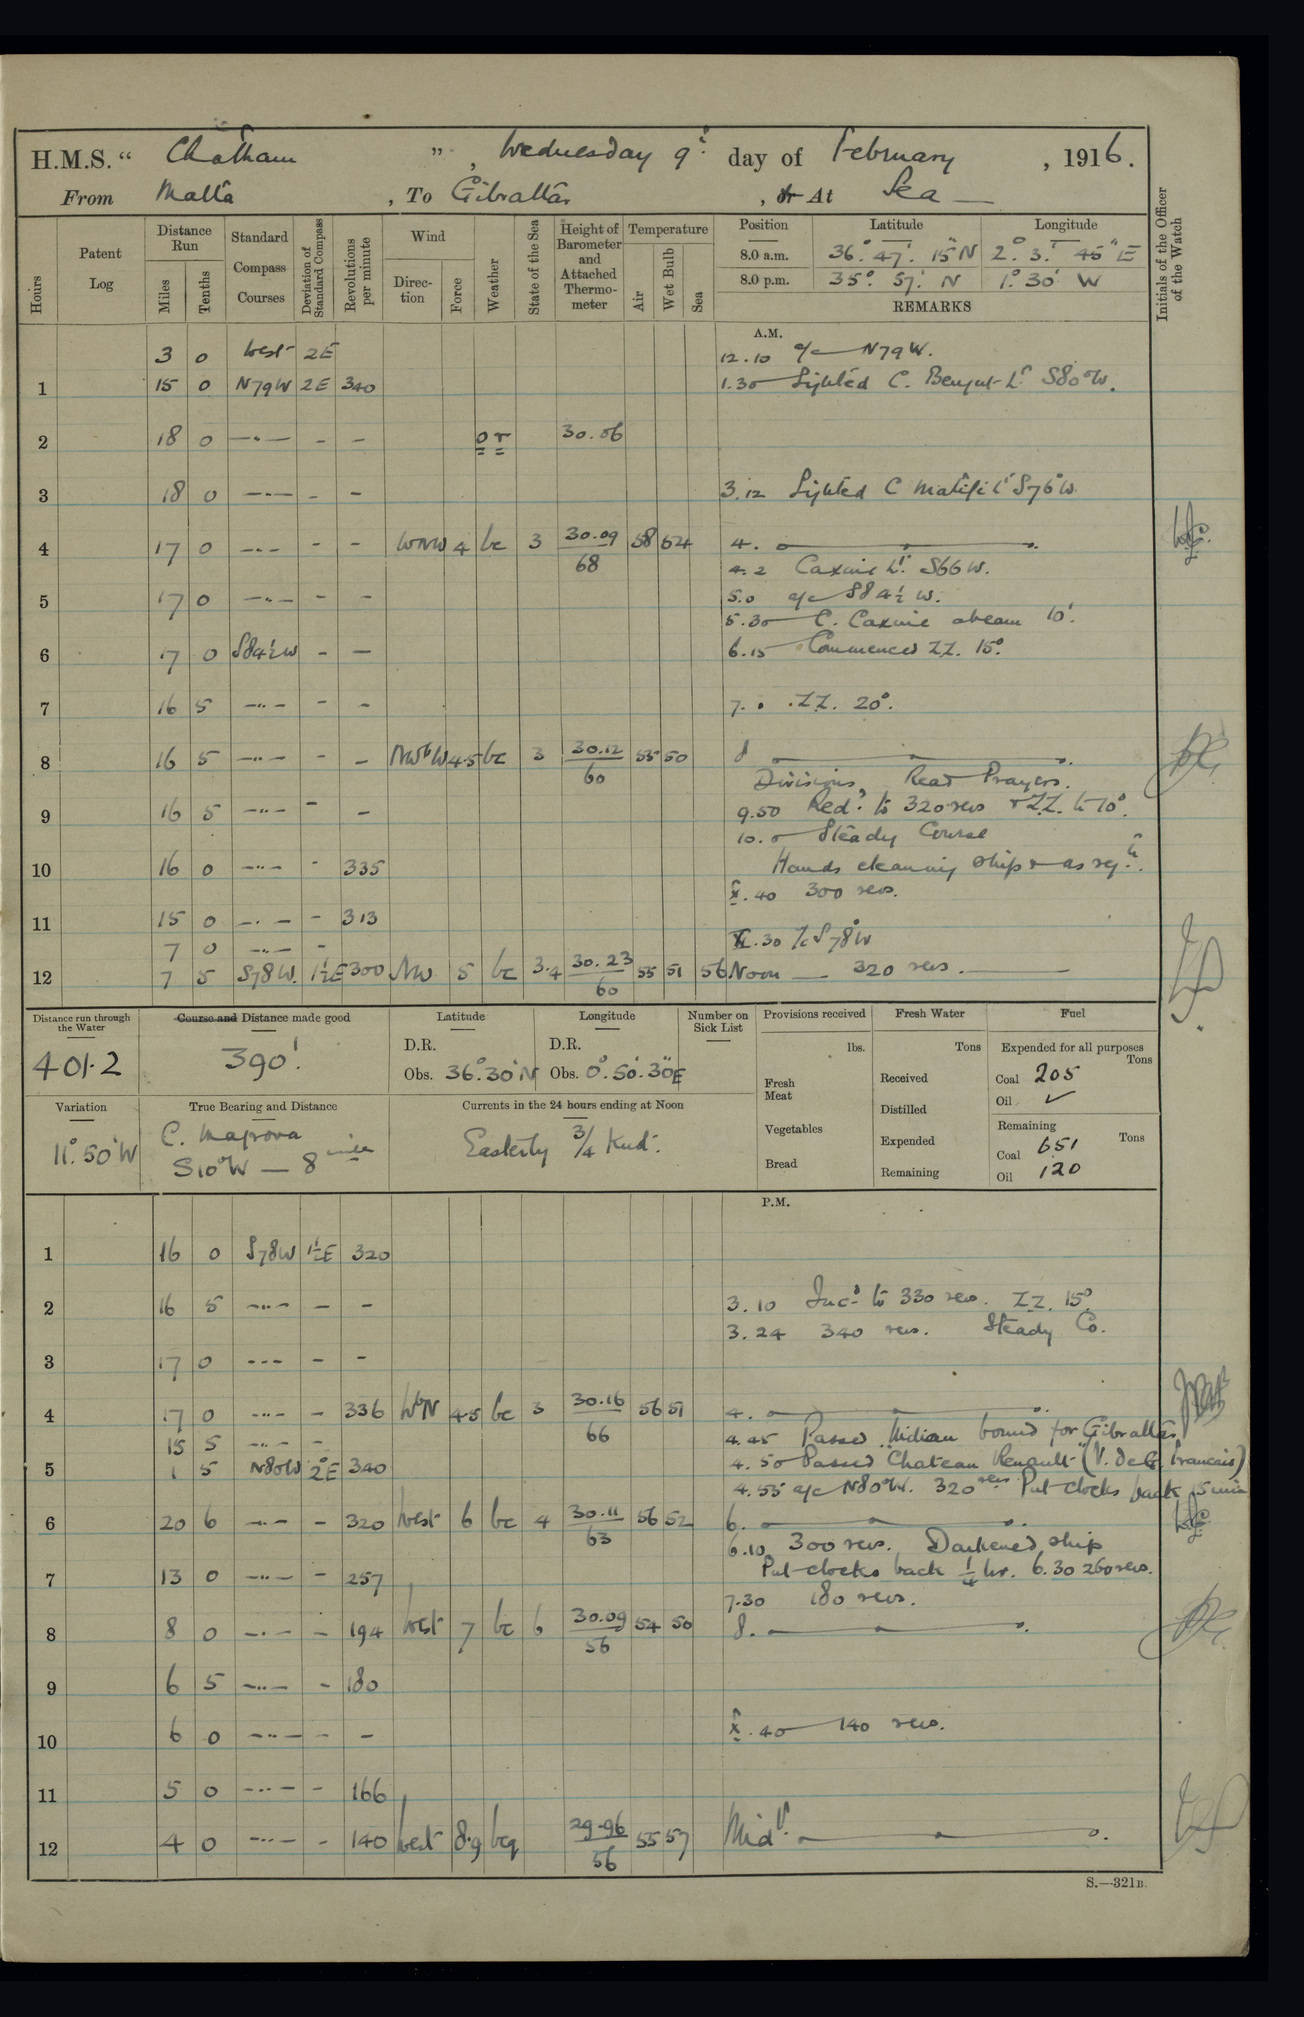 H.M.S. " Chatham ", Wednesday 9th day of February, 1916.
From Malta, To Gibraltar, or At Sea
Hours
Patent Log
Distance Run
Miles
Tenths
Standard Compass Courses
Deviation of Standard Compass
Revolutions per minute
Wind
Direction
Force
Weather
State of the Sea
Height of Barometer and Attached Thermometer
Temperature
Air
Wet Bulb
Sea
Position
Latitude
Longitude
8.0 a.m. 36°. 47'. 15" N 2°. 3.' 45" E
8.0 p.m. 35°. 57'. N 1°. 30' W
REMARKS
Initials of the Officer of the Watch
A.M.
3 0 West 2E 12.10 a/c N79W.
1 15 0 N79W 2E 340 1.30 Sighted C. Bengut Lt S80°W.
2 18 0 - - 30.06
3 18 0 - - 3.12 Sighted C Matifi Lt S76°W
4 17 0 - - WNW 4 bc 3 30.09 58 54 4.
68
4.2 Caxine Lt S66W.
5 17 0 - - 5.0 a/c S84½W.
5.30 C. Caxine abeam 10'.
6 17 0 S84½W - - 6.15 Commenced ZZ. 15°.
7 16 5 - - 7. ZZ. 20°.
8 16 5 - - NWbW 4.5 bc 3 30.12 55 50 8
60
Divisions, Read Prayers.
9 16 5 - - 9.50 Red. to 320 revs & ZZ. to 10°.
10.0 Steady Course
10 16 0 - 335 Hands cleaning Ship & as req.
X.40 300 revs.
11 15 0 - 313
7 0 - XI.30 a/c S78°W
12 7 5 S78W. 1½E 300 NW 5 bc 3.4 30.23 55 51 56 Noon 320 revs.
60
Distance run through the Water
401.2
Course and Distance made good
390'.
Latitude
D.R.
Obs. 36°.30' N
Longitude
D.R.
Obs. 0°.50'.30" E
Number on Sick List
Provisions received
lbs.
Fresh Meat
Vegetables
Bread
Fresh Water
Tons
Received
Distilled
Expended
Remaining
Fuel
Expended for all purposes
Tons
Coal 205
Oil ✓
Remaining
Tons
Coal 651
Oil 120
Variation
11°.50' W
True Bearing and Distance
S10°W — 8 miles
Currents in the 24 hours ending at Noon
Easterly ¾ Knot.
P.M.
1 16 0 S78W 1½E 320
2 16 5 - - 3.10 Incd to 330 revs. ZZ. 15°.
3.24 340 revs. Steady Co.
3 17 0 - -
4 17 0 - 336 WbN 4.5 bc 3 30.16 56 51 4.
66
15 5 - 4.45 Passed Midian bound for Gibraltar
5 1 5 N80W 2°E 340 4.50 Passed "Chateau Renault" (V. de G. francais)
4.55 a/c N80°W. 320 revs Put clocks back 5 min
6 20 6 - 320 West 6 bc 4 30.11 56 52 6.
63
6.10 300 revs. Darkened ship
7 13 0 - 257 Put clocks back ¼ hr. 6.30 260 revs.
7.30 180 revs.
8 8 0 - 194 West 7 bc 6 30.09 54 50 8.
56
9 6 5 - 180
10 6 0 - - X.40 140 revs.
11 5 0 - 166
12 4 0 - 140 West 8.9 bcq 29.96 55 57 Midt.
56
S.—321B.